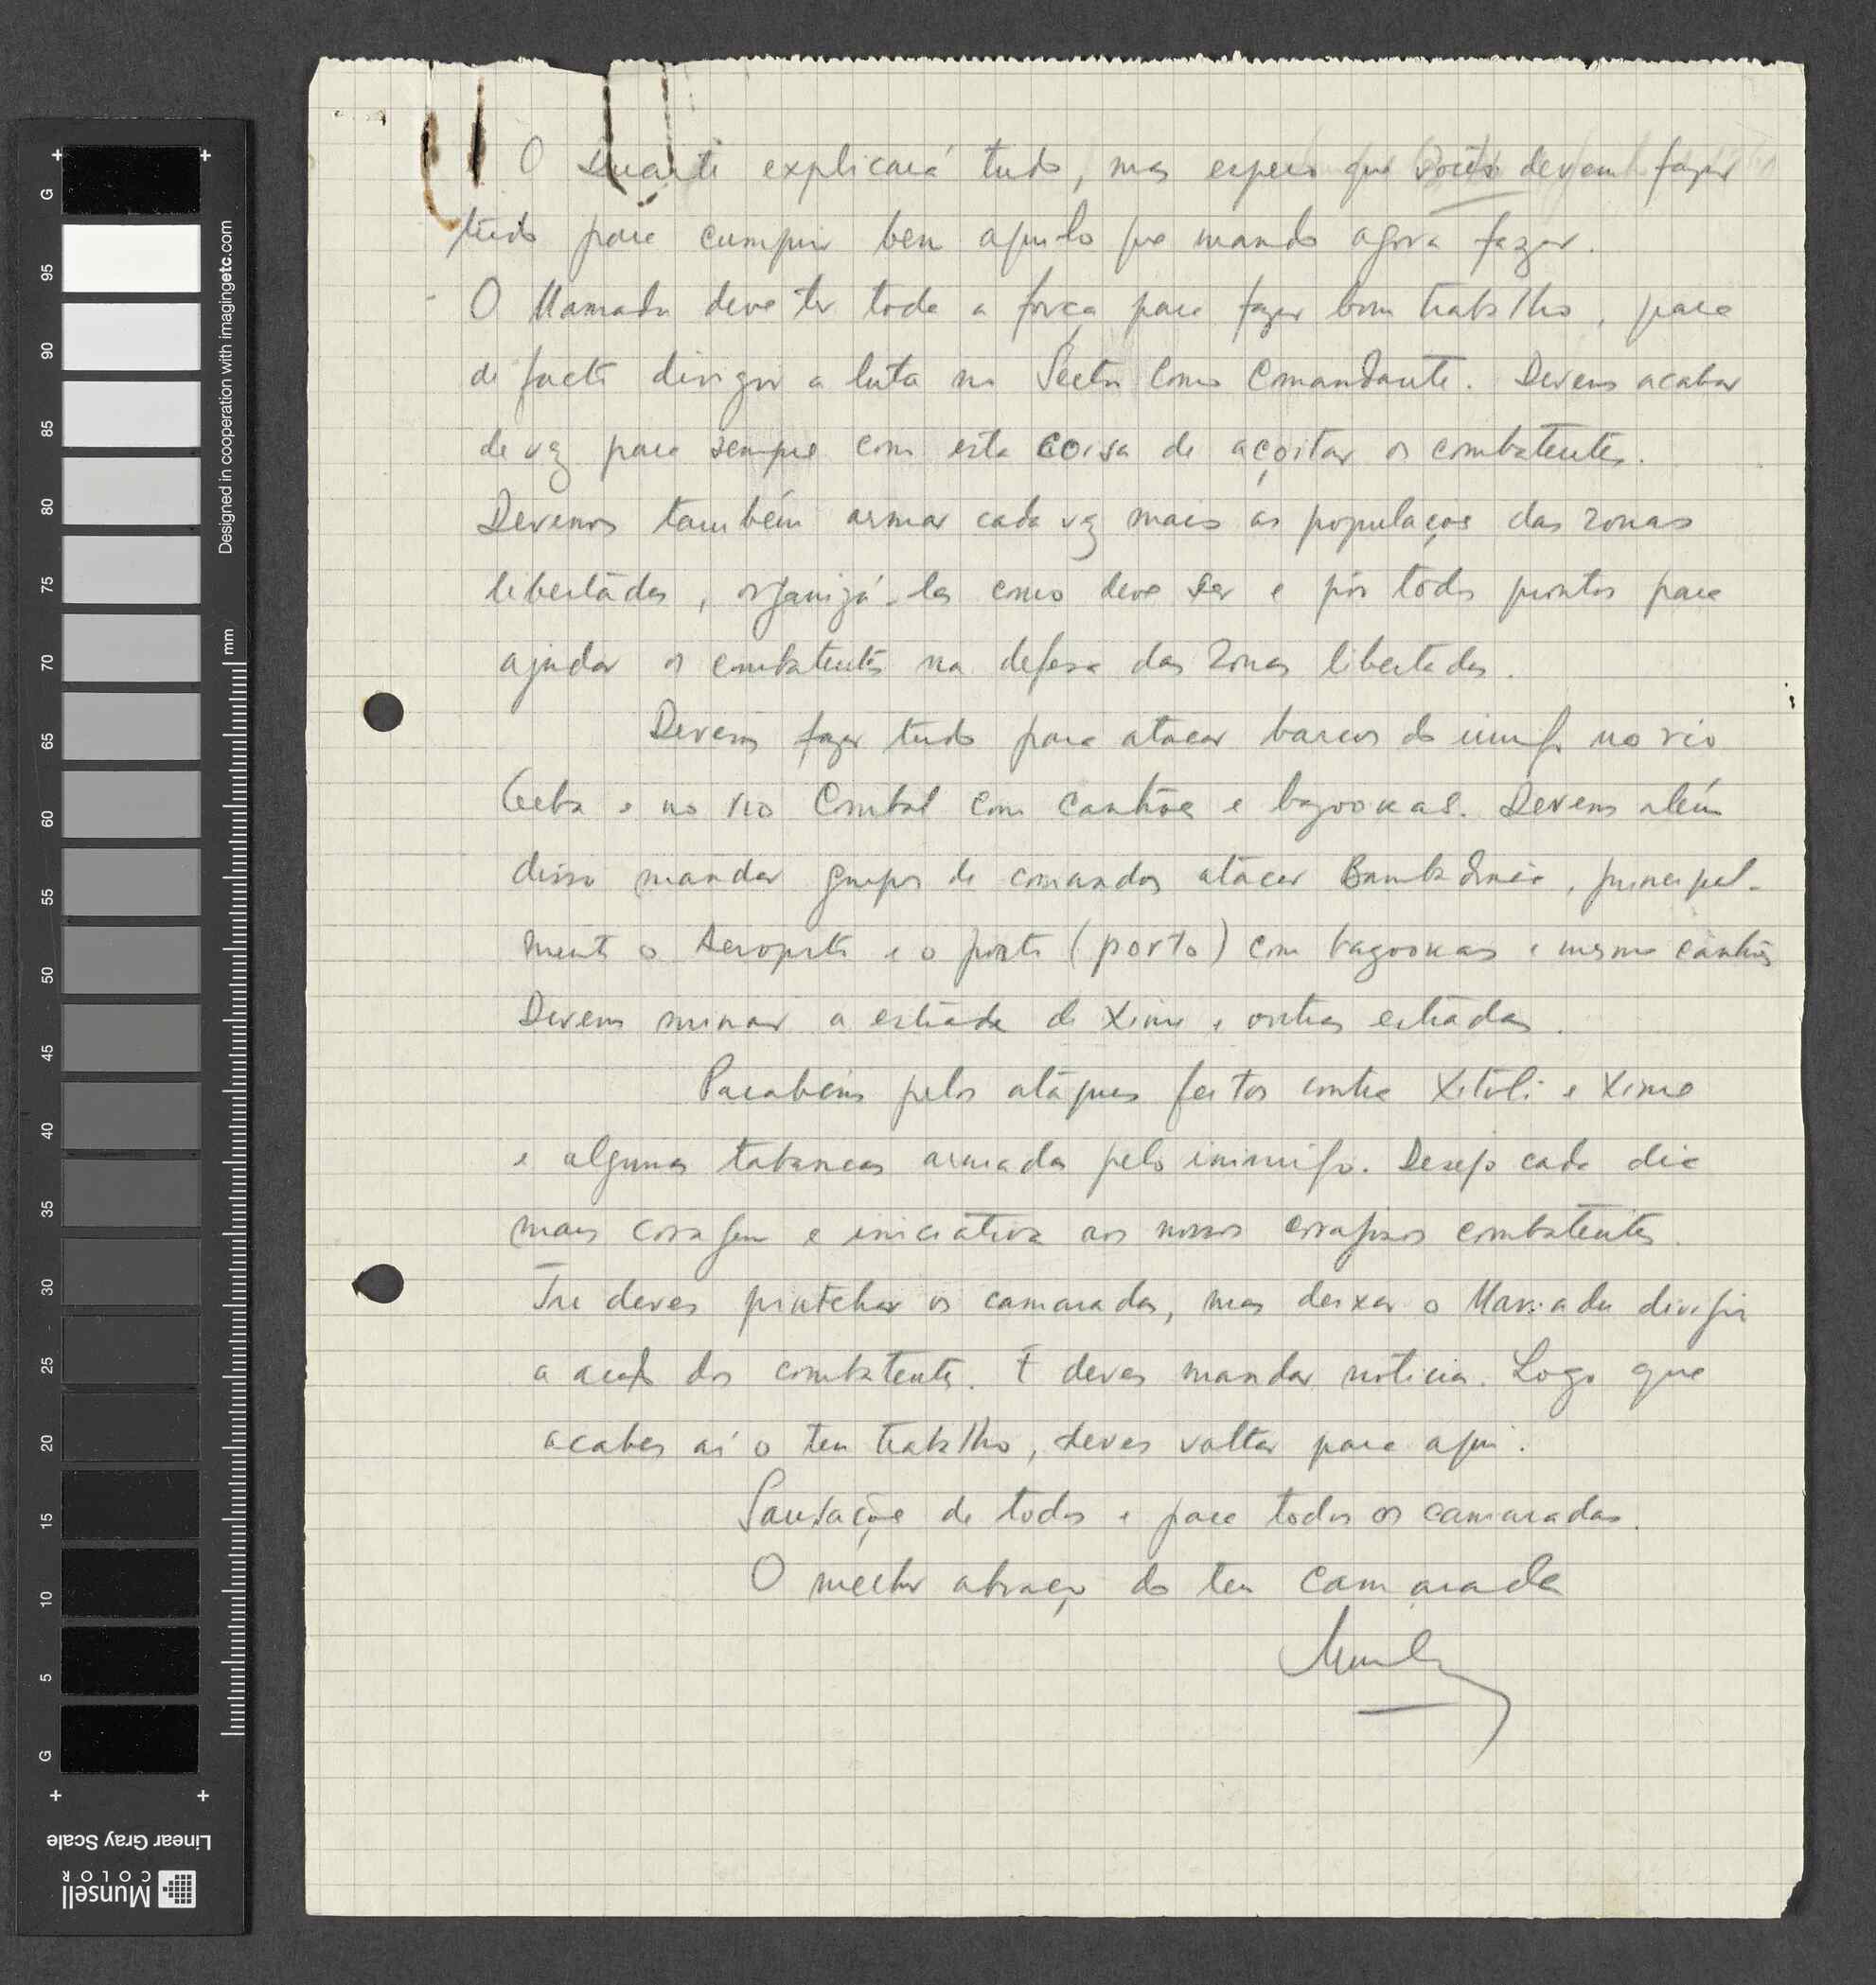 O Duarte explicará tudo, mas espero que vocês devem fazer
tudo para cumprir bem aquilo que mando agora fazer.
O Mamadu deve ter toda a força para fazer bom trabalho, para
de facto dirigir a luta no Sector como Comandante. Devem acabar
de vez para sempre com esta coisa de açoitar os combatentes.
Devemos também armar cada vez mais as populações das zonas
libertadas, organizá-las como deve ser e pôr todos prontos para
ajudar os combatentes na defesa das zonas libertadas.
Devem fazer tudo para atacar barcos do inimigo no rio
Geba e no rio Corubal com canhões e bazookas. Devem além
disso mandar grupos de comandos atacar Bambadinca, principal-
mente o Aeroporto e o porto (porto) com bazookas e mesmo canhões
Devem minar a estrada de Xime e outras estradas.
Parabéns pelos ataques feitos contra Xitoli e Xime
e algumas tabancas armadas pelo inimigo. Desejo cada dia
mais coragem e iniciativa aos nossos corajosos combatentes.
Tu deves controlar os camaradas, mas deixar o Mamadu dirigir
a acção dos combatentes. E deves mandar notícia. Logo que
acabes aí o teu trabalho, deves voltar para aqui.
Saudações de todos e para todos os camaradas.
O melhor abraço do teu camarada
Designed in cooperation with imagingetc.com
mm
G 95 90 85 80 75 70 65 60 55 50 45 40 35 30 25 20 15 10 5 G
Linear Gray Scale
Munsell
COLOR